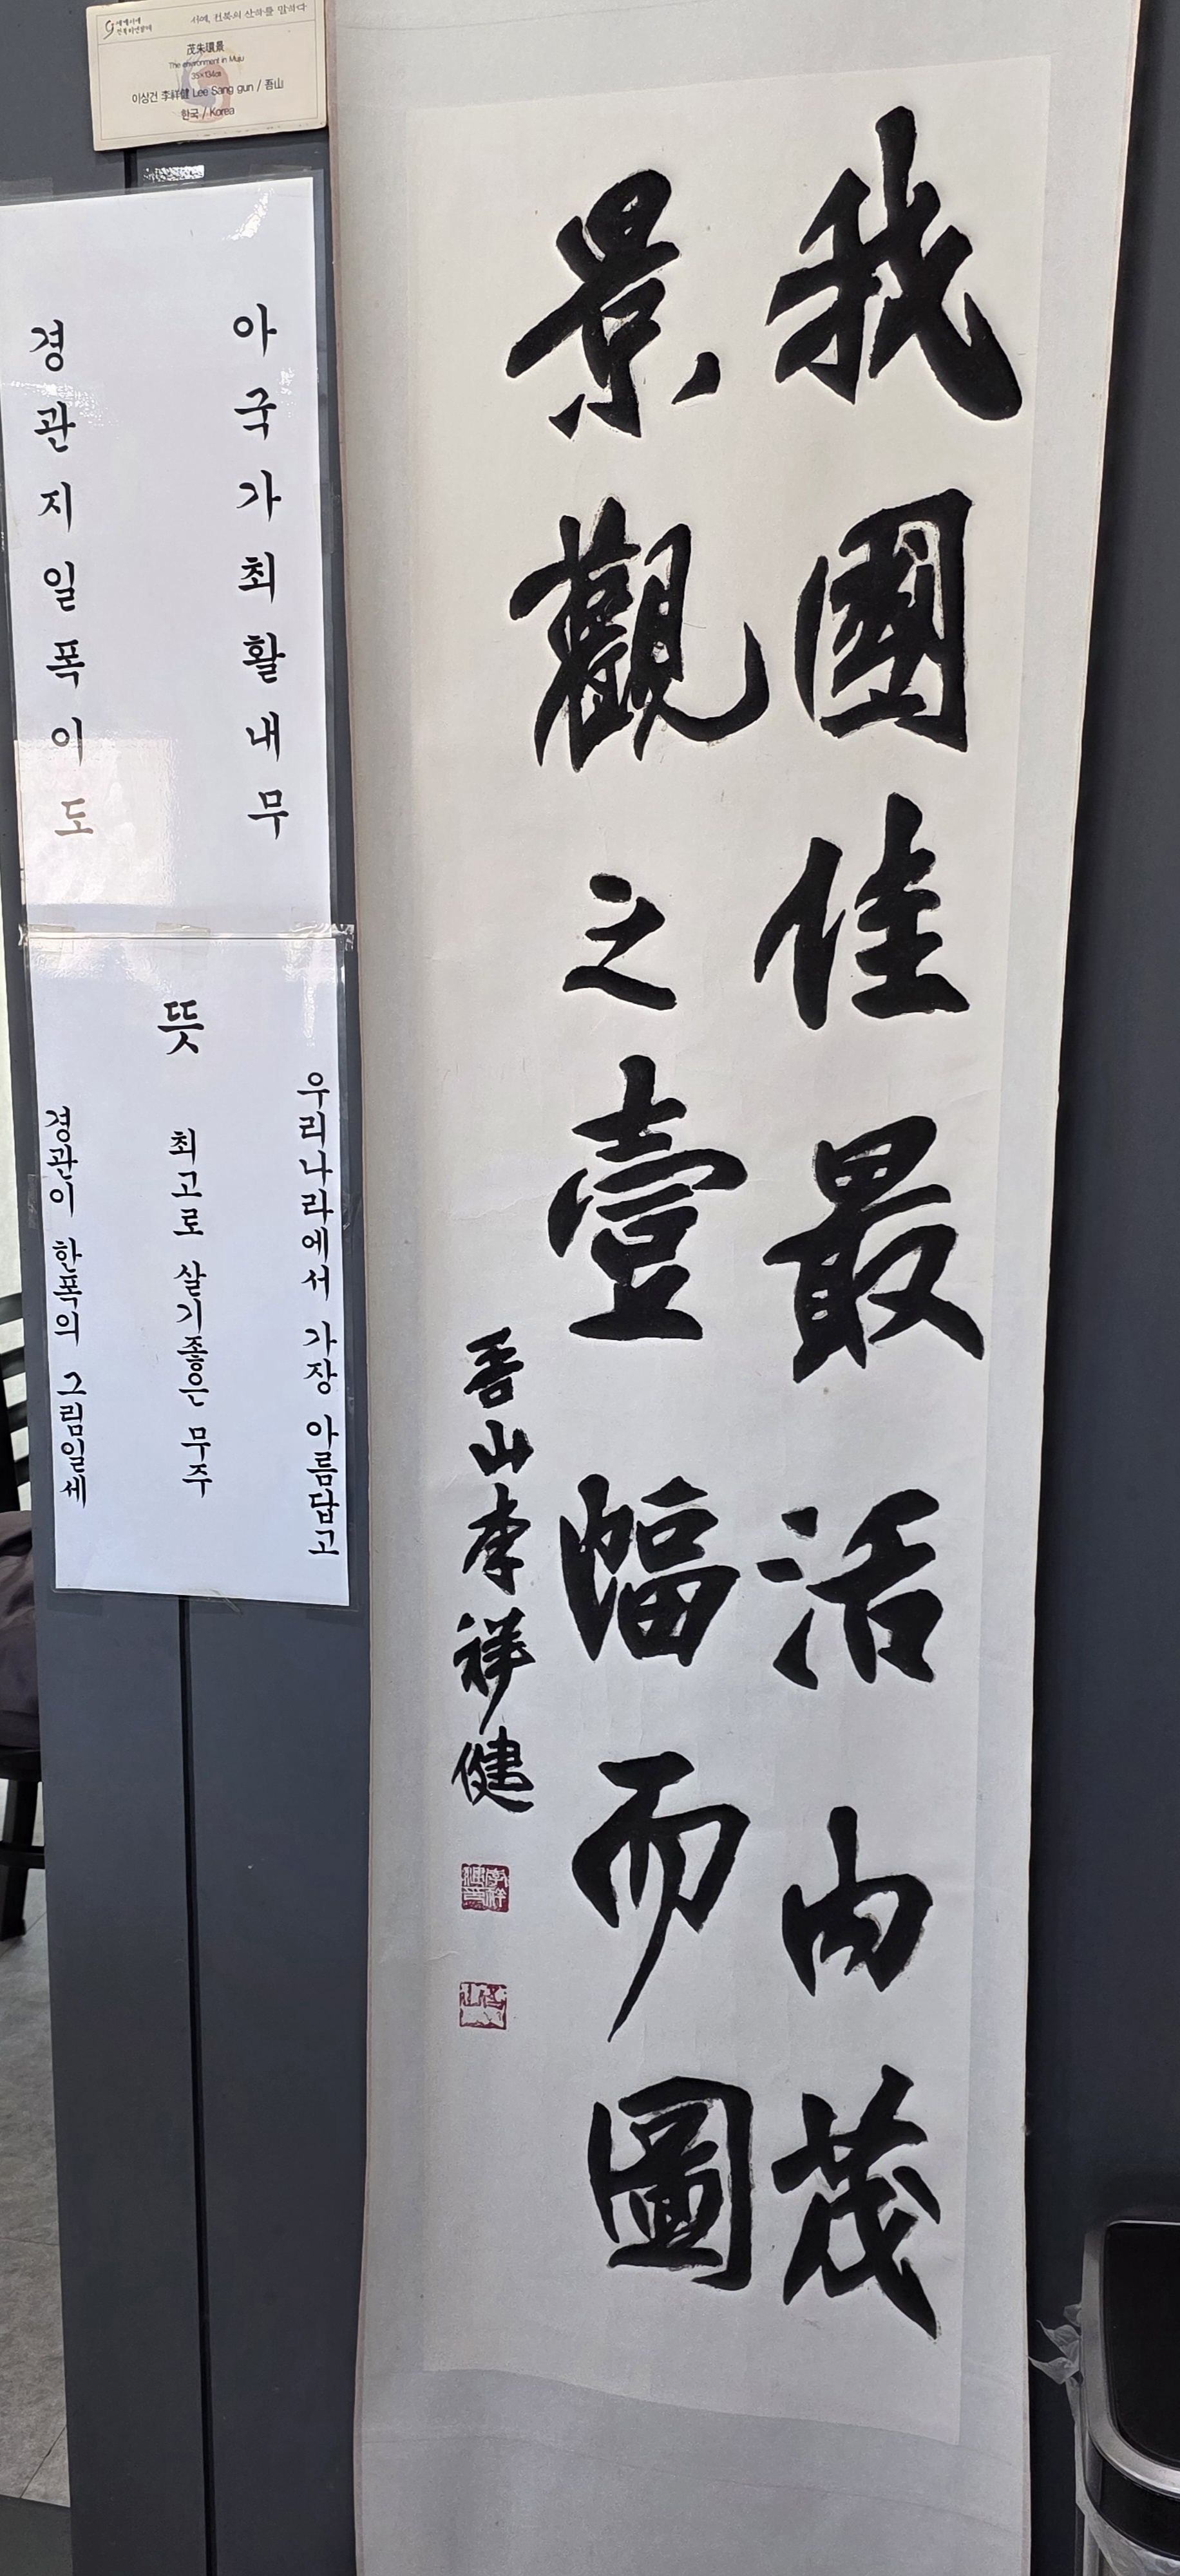 세계서예
전북비엔날레
서예, 전북의 산하를 말하다
茂朱環景
The environment in Muju
35×134㎝
이상건 李祥健 Lee Sang gun / 吾山
한국 / Korea
아국가최활내무
경관지일폭이도
뜻
우리나라에서 가장 아름답고
최고로 살기좋은 무주
경관이 한폭의 그림일세
我國佳最活内茂
景觀之壹幅而圖
吾山李祥健